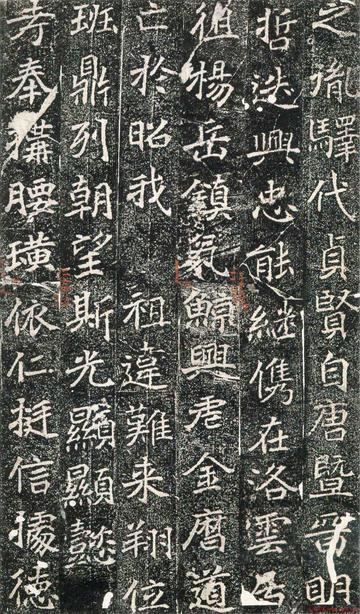 之胤驛代貞賢自唐暨晋明
哲迭興忠能繼儁在洛雲居
徂楊岳鎮氣鯨興虐金磨道
亡於昭我　祖違難来翔位
班鼎列朝望斯光顯顯懿
考奉構腰璜依仁挺信據德